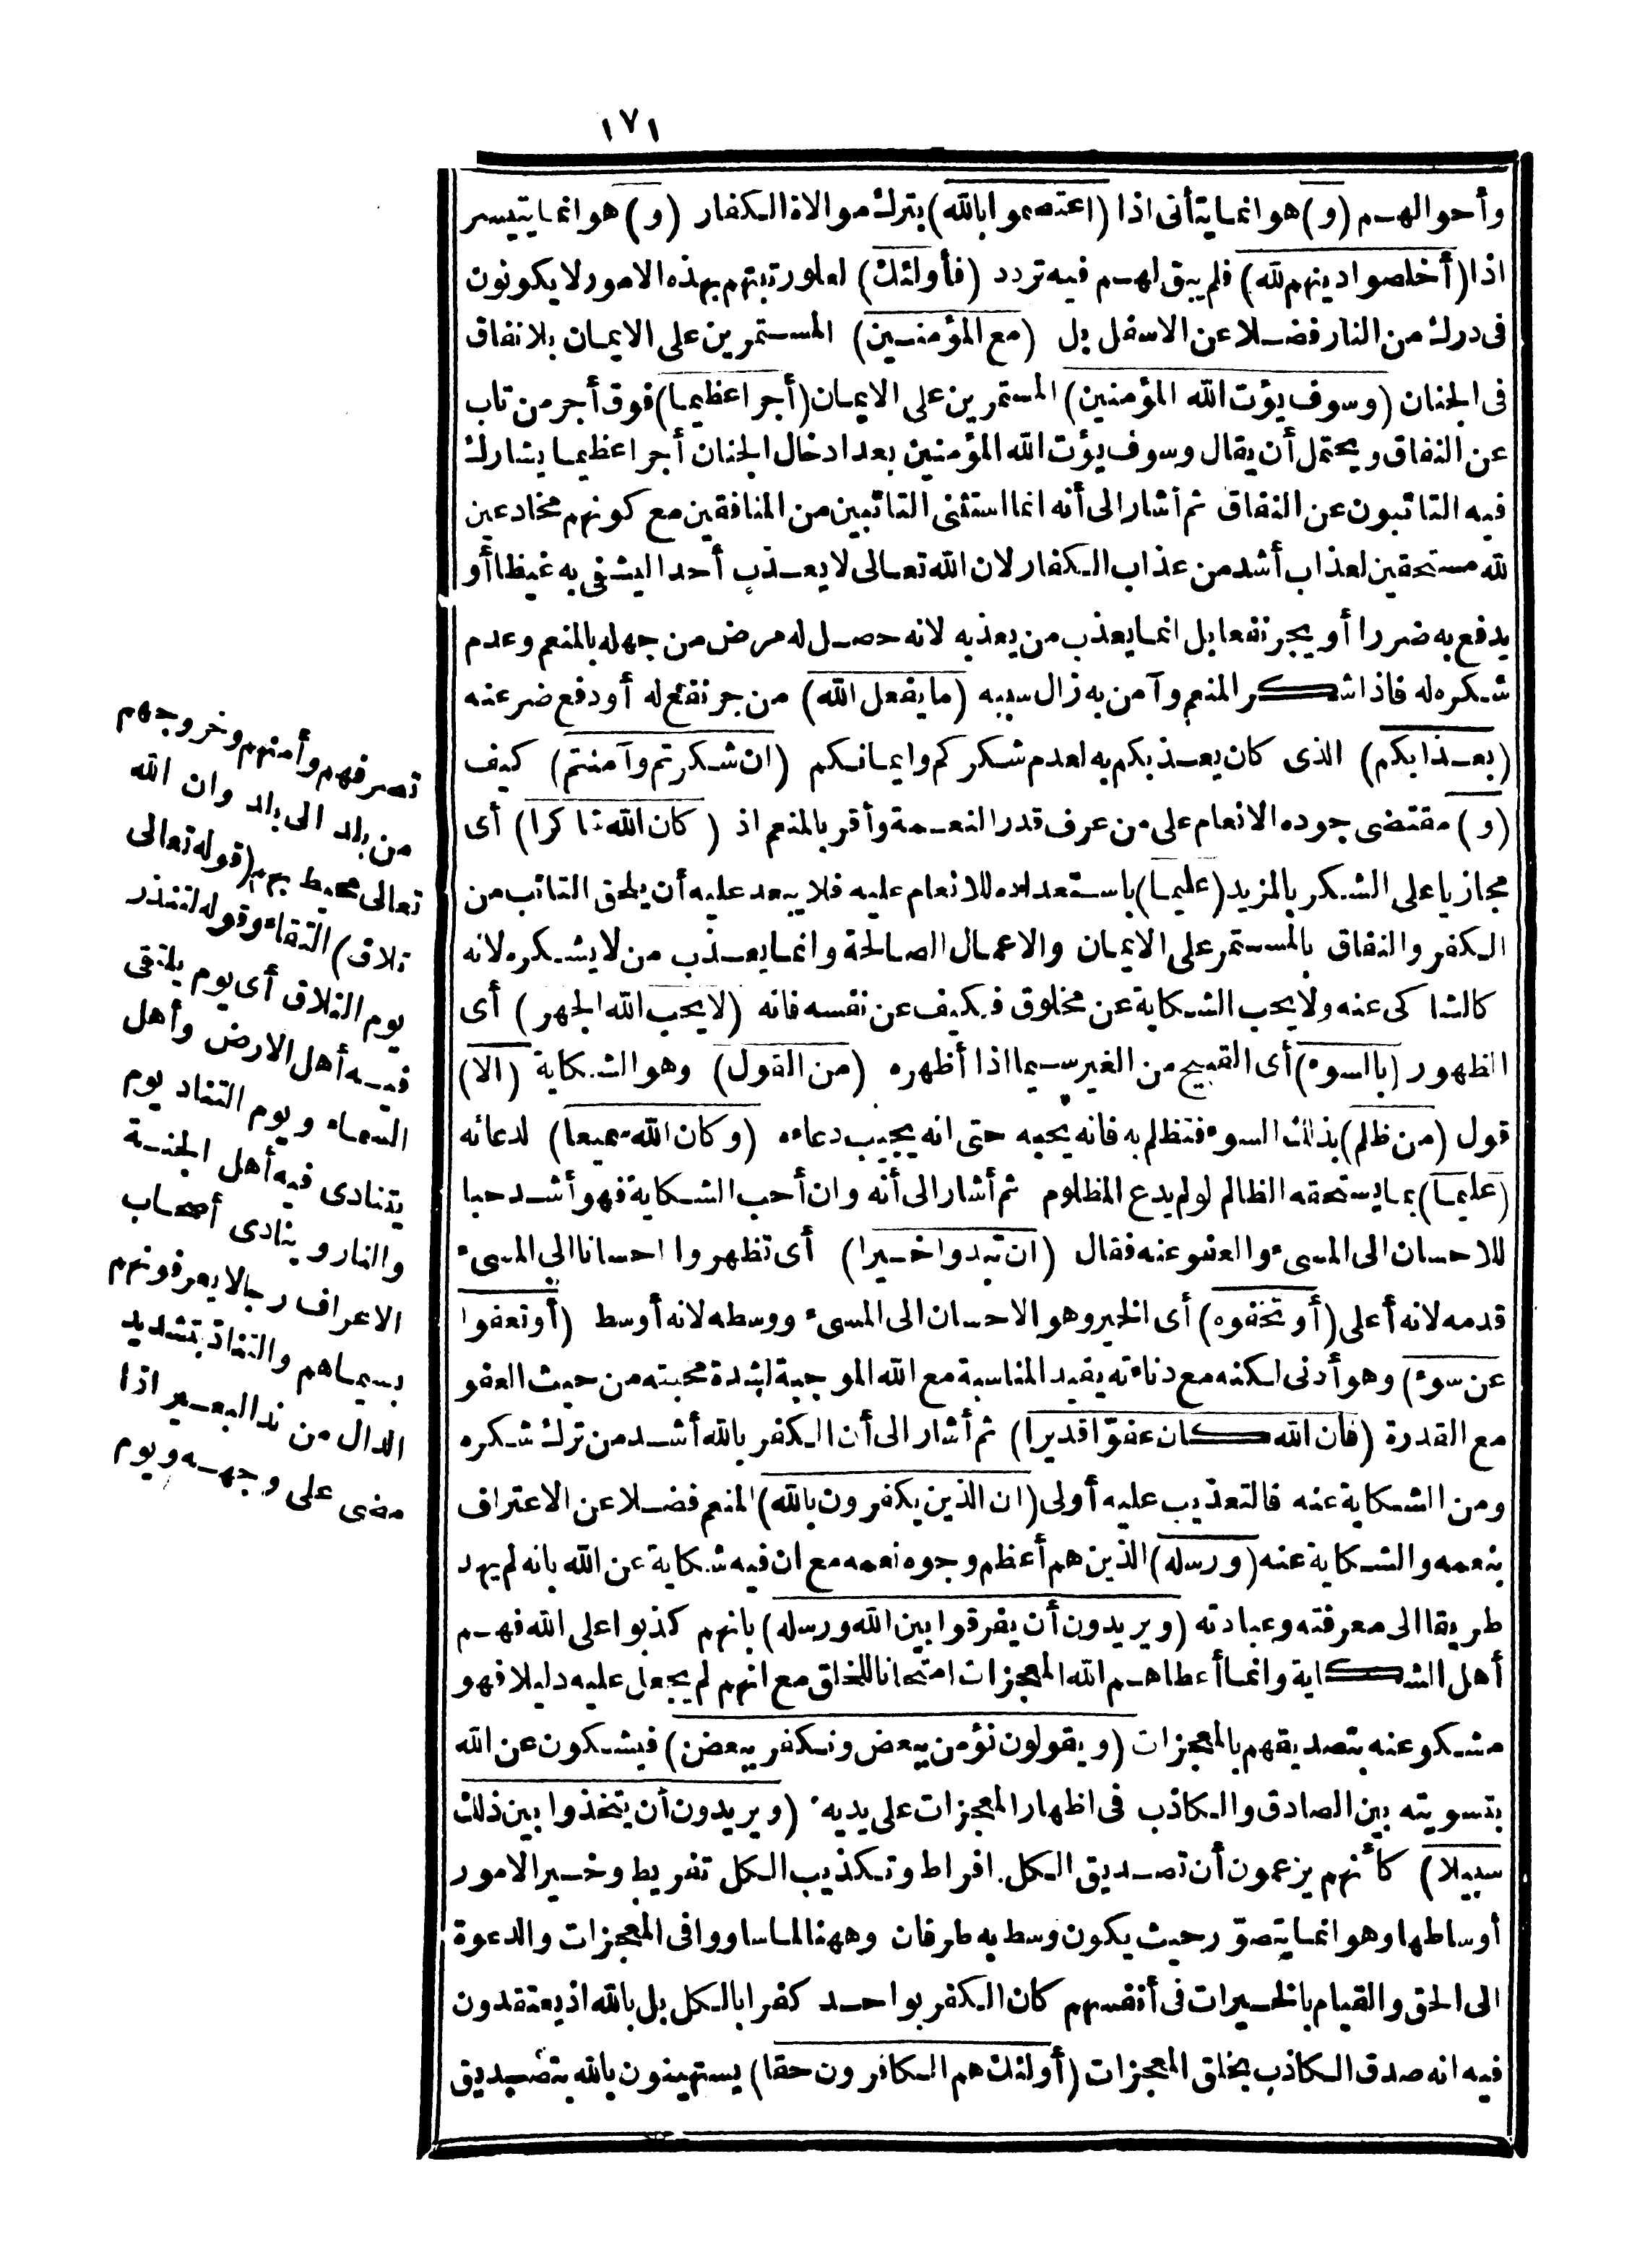 ١٧١
وأحوالهم (و) هو انما يتأتى اذا (اعتصموا بالله) بترك موالاة الكفار (و) هو انما يتيسر
اذا (أخلصوا دينهم لله) فلم يبق لهم فيه تردد (فأولئك) لعلو رتبتهم بهذه الامور لا يكونون
فى درك من النار فضلا عن الاسفل بل (مع المؤمنين) المستمرين على الايمان بلا نفاق
فى الجنان (وسوف يؤت الله المؤمنين) المستمرين على الايمان (أجرا عظيما) فوق أجر من تاب
عن النفاق ويحتمل أن يقال وسوف يؤت الله المؤمنين بعد ادخال الجنان أجرا عظيما يشارك
فيه التائبون عن النفاق ثم أشار الى أنه انما استثنى التائبين من المنافقين مع كونهم مخادعين
لله مستحقين لعذاب أشد من عذاب الكفار لان الله تعالى لا يعذب أحدا ليشفى به غيظا أو
يدفع به ضررا أو يجر نفعا بل انما يعذب من يعذبه لانه حصل له مرض من جهله بالمنعم وعدم
شكره له فاذا شكر المنعم وآمن به زال سببه (ما يفعل الله) من جر نفع له أو دفع ضر عنه
(بعذابكم) الذى كان يعذبكم به لعدم شكركم وايمانكم (ان شكرتم وآمنتم) كيف
(و) مقتضى جوده الانعام على من عرف قدر النعمة وأقر بالمنعم اذ (كان الله شاكرا) أى
مجازيا على الشكر بالمزيد (عليما) باستعداده للانعام عليه فلا يبعد عليه أن يلحق التائب من
الكفر والنفاق بالمستمر على الايمان والاعمال الصالحة وانما يعذب من لا يشكره لانه
كالشاكى عنه ولا يحب الشكاية عن مخلوق فكيف عن نفسه فانه (لا يحب الله الجهر) أى
الظهور (بالسوء) أى القبيح من الغير سيما اذا أظهره (من القول) وهو الشكاية (الا)
قول (من ظلم) بذلك السوء فتظلم به فانه يحبه حتى انه يجيب دعاءه (وكان الله سميعا) لدعائه
(عليما) بما يستحقه الظالم لو لم يدع المظلوم ثم أشار الى أنه وان أحب الشكاية فهو أشد حبا
للاحسان الى المسىء والعفو عنه فقال (ان تبدوا خيرا) أى تظهروا احسانا الى المسىء
قدمه لانه أعلى (أو تخفوه) أى الخير وهو الاحسان الى المسىء ووسطه لانه أوسط (أو تعفوا
عن سوء) وهو أدنى لكنه مع دناءته يفيد المناسبة مع الله الموجبة لشدة محبته من حيث العفو
مع القدرة (فان الله كان عفوّا قديرا) ثم أشار الى أن الكفر بالله أشد من ترك شكره
ومن الشكاية عنه فالتعذيب عليه أولى (ان الذين يكفرون بالله) المنعم فضلا عن الاعتراف
بنعمه والشكاية عنه (ورسله) الذين هم أعظم وجوه نعمه مع ان فيه شكاية عن الله بانه لم يهد
طريقا الى معرفته وعبادته (ويريدون أن يفرقوا بين الله ورسله) بانهم كذبوا على الله فهم
أهل الشكاية وانما أعطاهم الله المعجزات امتحانا للخلق مع انهم لم يجعل عليه دليلا فهو
مشكو عنه بتصديقهم بالمعجزات (ويقولون نؤمن ببعض ونكفر ببعض) فيشكون عن الله
بتسويته بين الصادق والكاذب فى اظهار المعجزات على يديه (ويريدون أن يتخذوا بين ذلك
سبيلا) كأنهم يزعمون أن تصديق الكل افراط وتكذيب الكل تفريط وخير الامور
أوساطها وهو انما يتصوّر حيث يكون وسط به طرفان وههنا لما ساووا فى المعجزات والدعوة
الى الحق والقيام بالخيرات فى أنفسهم كان الكفر بواحد كفرا بالكل بل بالله اذ يعتقدون
فيه انه صدق الكاذب بخلق المعجزات (أولئك هم الكافرون حقا) يستهينون بالله بتصديق
تصرفهم وأمنهم وخروجهم
من بلد الى بلد وان الله
تعالى محيط بهم (قوله تعالى
تلاق) التقاء وقوله لتنذر
يوم التلاق أى يوم يلتقى
فيه أهل الارض وأهل
السماء ويوم التناد يوم
يتنادى فيه أهل الجنة
والنار وينادى أصحاب
الاعراف رجالا يعرفونهم
بسيماهم والتنادّ بتشديد
الدال من ند البعير اذا
مضى على وجهه ويوم